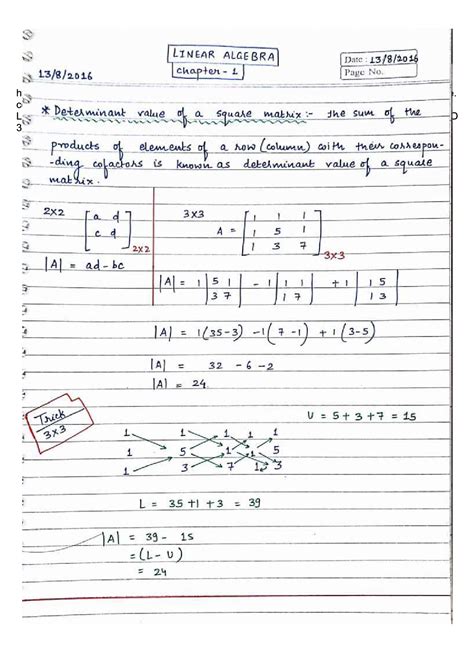 LINEAR ALGEBRA
Chapter - 1
Date : 13/8/2016
Page No.
13/8/2016
* Determinant value of a square matrix :- the sum of the
products of elements of a row (column) with their correspon-
-ding cofactors is known as determinant value of a square
matrix.
2x2 [a d
c d] 2x2
|A| = ad - bc
3x3
A = [1 1 1
1 5 1
1 3 7] 3x3
|A| = 1 |5 1
3 7| - 1 |1 1
1 7| + 1 |1 5
1 3|
|A| = 1(35-3) -1(7-1) +1(3-5)
|A| = 32 - 6 - 2
|A| = 24
Trick
3x3
U = 5 + 3 + 7 = 15
1 1 1 1
1 5 1 1 5
1 3 7 1 3
L = 35 + 1 + 3 = 39
|A| = 39 - 15
= (L - U)
= 24